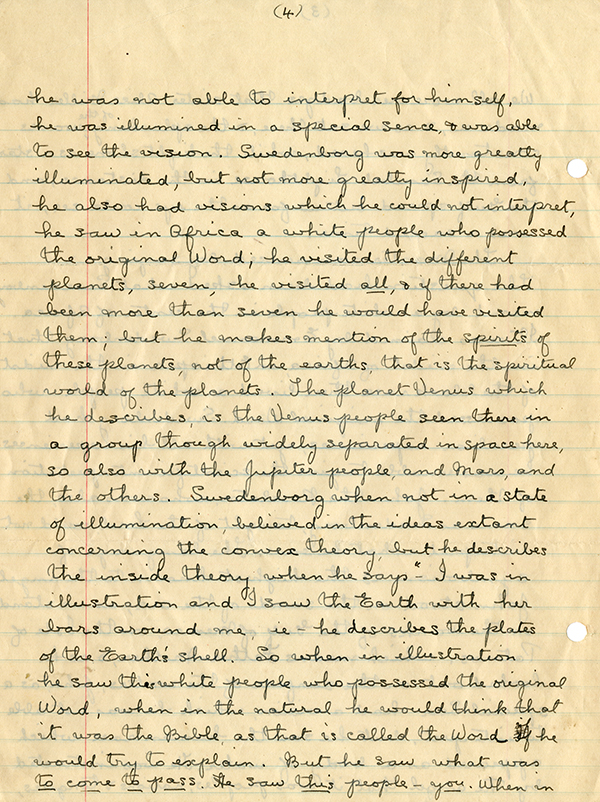 (4)
he was not able to interpret for himself,
he was illumined in a special sence, & was able
to see the vision. Swedenborg was more greatly
illuminated, but not more greatly inspired,
he also had visions which he could not interpret,
he saw in Africa a white people who possessed
the original Word, he visited the different
planets, seven, he visited all, & if there had
been more than seven he would have visited
them; but he makes mention of the spirits of
these planets, not of the earths, that is the spiritual
world of the planets. The planet Venus which
he describes, is the Venus people seen there in
a group though widely separated in space here,
so also with the Jupiter people, and Mars, and
the others. Swedenborg when not in a state
of illumination, believed in the ideas extant
concerning the convex theory, but he describes
the inside theory when he says "- I was in
illustration and I saw the Earth with her
bars around me, ie - he describes the plates
of the Earth's shell. So when in illustration
he saw this white people who possessed the original
Word, when in the natural he would think that
it was the Bible, as that is called the Word he
would try to explain. But he saw what was
to come to pass. He saw this people - you. When in